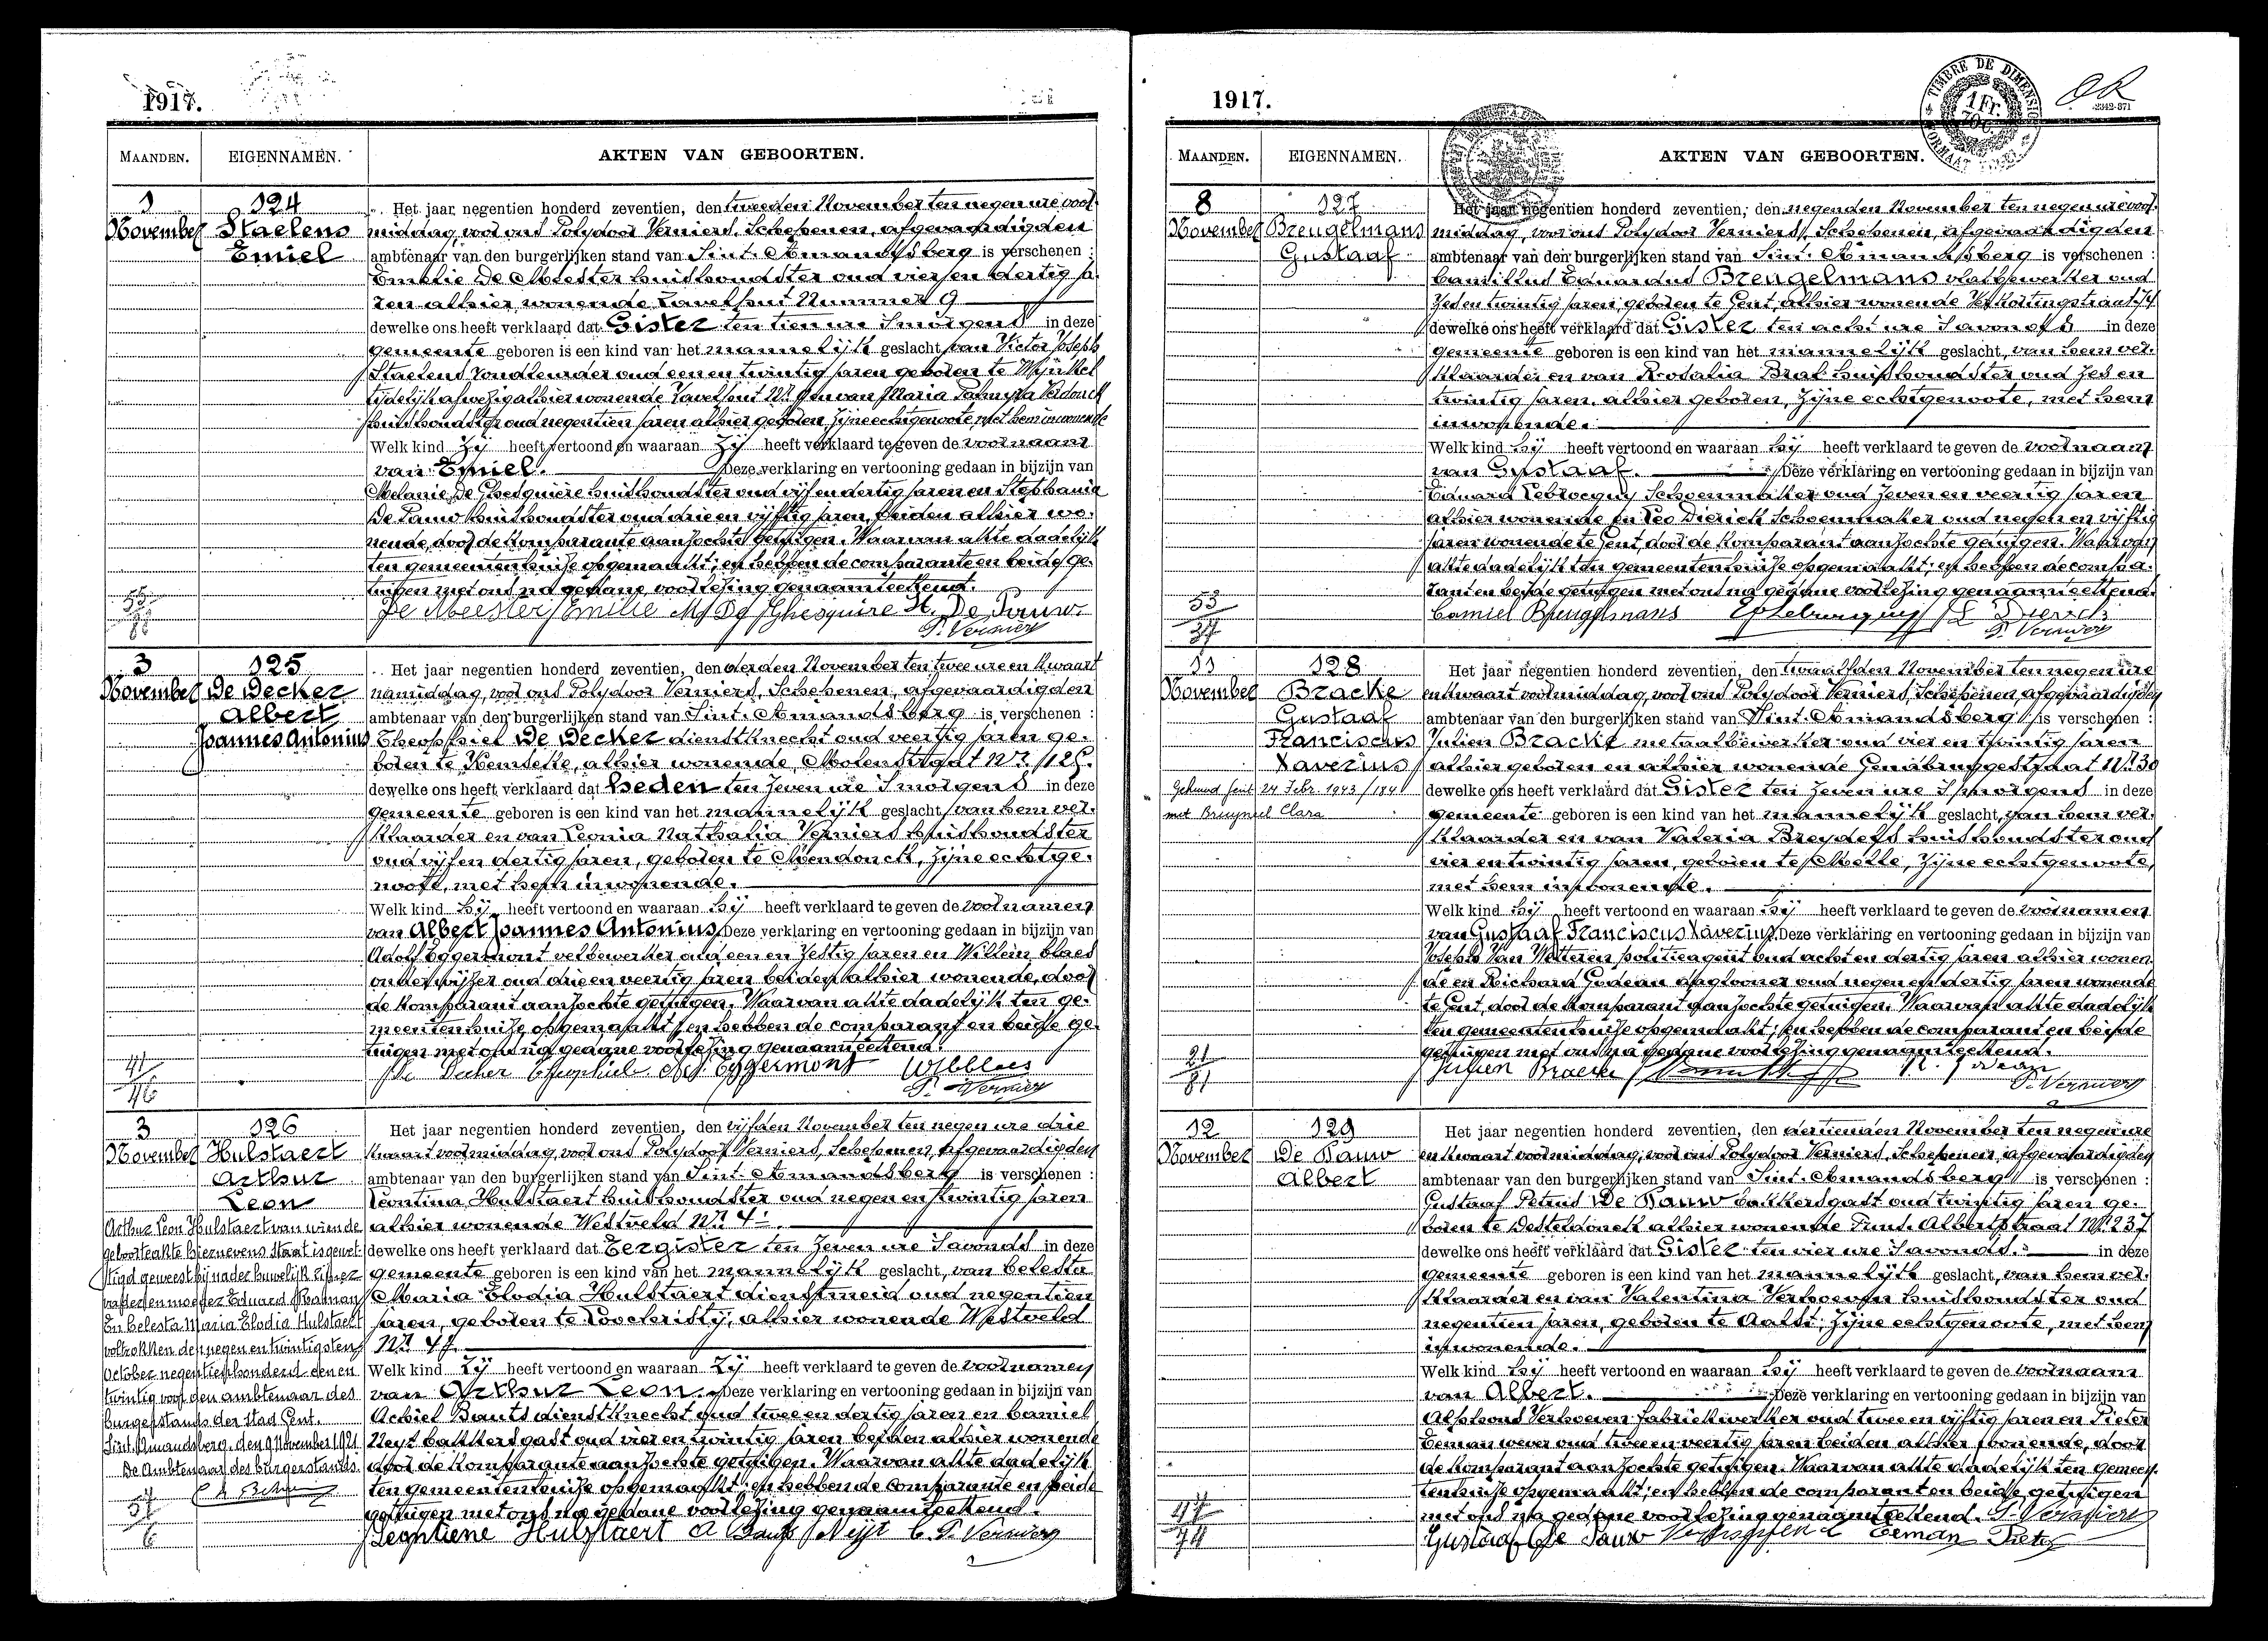 1917.
MAANDEN. EIGENNAMEN. AKTEN VAN GEBOORTEN.
1 124 Het jaar negentien honderd zeventien, den tweeden November ten negen ure voor
November Staelens middag, voor ons Polydoor Verniers, Schepenen, afgevaardigden
Emiel ambtenaar van den burgerlijken stand van Sint-Amandsberg is verschenen :
Emelie De Meester huishoudster oud vier en dertig ja
ren alhier wonende Tavelhout Nummer 9
dewelke ons heeft verklaard dat Gister ten tien ure 's morgens in deze
gemeente geboren is een kind van het mannelijk geslacht, van Victor Joseph
Staelens oud een en twintig jaren geboren te
tijdelijk afwezig alhier wonende Tavelhout Nr 9 en van Maria
huishoudster oud negentien jaren alhier geboren, zijne echtgenoote, met hem inwonende
Welk kind Zij heeft vertoond en waaraan Zij heeft verklaard te geven de voornaam
van Emiel. Deze verklaring en vertooning gedaan in bijzijn van
Melanie De Ghesquière huishoudster oud vijf en dertig jaren en Stephanie
De Pauw huishoudster oud drie en vijftig jaren, beiden alhier wo-
nende, door de Komparante aanzochte getuigen. Waarvan akte dadelijk
ten gemeentenhuize opgemaakt; en hebben de comparante en beide ge-
tuigen met ons na gedane voorlezing genaamteekend.
De Meester Emilie M De Ghesquiere St. De Pauw.
P. Verniers
3 125 Het jaar negentien honderd zeventien, den derden November ten twee ure en kwaart
November De Decker namiddag, voor ons Polydoor Verniers, Schepenen, afgevaardigden
Albert ambtenaar van den burgerlijken stand van Sint-Amandsberg is verschenen :
Joannes Antonius Theophiel De Decker dienstknecht oud veertig jaren ge-
boren te Kemseke, alhier wonende, Molenstraat Nr. 125.
dewelke ons heeft verklaard dat heden ten zeven ure 's morgens in deze
gemeente geboren is een kind van het mannelijk geslacht, van hem ver-
klaarder en van Leonia Nathalia Verniers huishoudster
oud vijf en dertig jaren, geboren te Mendonck, zijne echtge-
noote, met hem inwonende.
Welk kind hij heeft vertoond en waaraan hij heeft verklaard te geven de voornamen
van Albert Joannes Antonius Deze verklaring en vertooning gedaan in bijzijn van
Adolf Eggermont velbewerker oud een en zestig jaren en Willem Claes
onderwijzer oud drie en veertig jaren beiden alhier wonende, door
de Komparant aanzochte getuigen. Waarvan akte dadelijk ten ge-
meentenhuize, opgemaakt; en hebben de comparant en beide ge-
41 tuigen met ons na gedane voorlezing genaamteekend.
46 De Decker Theophiel Ad. Eggermont W Claes
P. Verniers
3 126 Het jaar negentien honderd zeventien, den vijfden November ten negen ure drie
November Hulstaert kwaart voormiddag, voor ons Polydoor Verniers, Schepenen, afgevaardigden
Arthur ambtenaar van den burgerlijken stand van Sint-Amandsberg is verschenen :
Leon Leontina Hulstaert huishoudster oud negen en twintig jaren
Arthur Leon Hulstaert van wiende alhier wonende Westveld Nr. 4.
geboorteakte hiernevens staat is gewet dewelke ons heeft verklaard dat Eergister ten zeven ure 's avonds in deze
tigd geweest bij nader huwelijk zijner gemeente geboren is een kind van het mannelijk geslacht, van Celesta
vader en moeder Eduard Maria Elodia Hulstaert dienstmeid oud negentien
En Celesta Maria Elodia Hulstaert jaren, geboren te Loochristij, alhier wonende Westveld
voltrokken den negen en twintigsten Nr. 4.
October negentienhonderd een en Welk kind Zij heeft vertoond en waaraan Zij heeft verklaard te geven de voornamen
twintig voor den ambtenaar des van Arthur Leon. Deze verklaring en vertooning gedaan in bijzijn van
burgerstands der stad Gent. Achiel Bauts dienstknecht oud twee en dertig jaren en Camiel
Sint-Amandsberg, den 9 November 1921 Neyt bakkersgast oud vier en twintig jaren beiden alhier wonende
De Ambtenaar des burgerstands. door de Komparante aanzochte getuigen. Waarvan akte dadelijk
ten gemeentenhuize opgemaakt; en hebben de comparante en beide
getuigen met ons na gedane voorlezing genaamteekend.
6 Leontiene Hulstaert A Bauts Neijt C. P. Verniers
1917.
TIMBRE DE DIMENSION
MAANDEN. EIGENNAMEN. AKTEN VAN GEBOORTEN.
8 127 Het jaar negentien honderd zeventien, den negenden November ten negen ure voor-
November Breugelmans middag, voor ons Polydoor Verniers, Schepenen, afgevaardigden
Gustaaf ambtenaar van den burgerlijken stand van Sint-Amandsberg is verschenen :
Camillus Eduardus Breugelmans vlasbewerker oud
zes en twintig jaren, geboren te Gent, alhier wonende
dewelke ons heeft verklaard dat Gister ten acht ure 's avonds in deze
gemeente geboren is een kind van het mannelijk geslacht, van hem ver-
klaarder en van Rosalia Brak huishoudster oud zes en
twintig jaren, alhier geboren, zijne echtgenoote, met hem
inwonende.
Welk kind hij heeft vertoond en waaraan hij heeft verklaard te geven de voornaam
van Gustaaf. Deze verklaring en vertooning gedaan in bijzijn van
Eduard Lebrocquy Schoenmaker oud zeven en veertig jaren
alhier wonende en Leo Dierick schoenmaker oud negen en vijftig
jaren wonende te Gent, door de Komparant aanzochte getuigen. Waarvan
akte dadelijk ten gemeentenhuize opgemaakt; en hebben de compa-
53 rant en beide getuigen met ons na gedane voorlezing genaamteekend.
Camiel Breugelmans L Dierick
P. Verniers
11 128 Het jaar negentien honderd zeventien, den twaalfden November ten negen ure
November Bracke en kwaart voormiddag, voor ons Polydoor Verniers, Schepenen, afgevaardigden
Gustaaf ambtenaar van den burgerlijken stand van Sint-Amandsberg is verschenen :
Franciscus Julien Bracke metaalbewerker oud vier en twintig jaren
Xaverius alhier geboren en alhier wonende Gentbruggestraat Nr. 30
Gehuwd Gent 24 Febr. 1943/184 dewelke ons heeft verklaard dat Gister ten zeven ure 's morgens in deze
met Bruyneel Clara gemeente geboren is een kind van het mannelijk geslacht, van hem ver-
klaarder en van Valeria Breydels huishoudster oud
vier en twintig jaren, geboren te Melle, zijne echtgenoote,
met hem inwonende.
Welk kind hij heeft vertoond en waaraan hij heeft verklaard te geven de voornamen
van Gustaaf Franciscus Xaverius Deze verklaring en vertooning gedaan in bijzijn van
Joseph Van Wetteren politieagent oud acht en dertig jaren alhier wonen
de en Richard Godeau daglooner oud negen en dertig jaren wonende
te Gent, door de Komparant aanzochte getuigen. Waarvan akte dadelijk
ten gemeentenhuize opgemaakt; en hebben de comparant en beide
21 getuigen met ons na gedane voorlezing genaamteekend.
81 Julien Bracke
P. Verniers
12 129 Het jaar negentien honderd zeventien, den dertienden November ten negen ure
November De Pauw en kwaart voormiddag, voor ons Polydoor Verniers, Schepenen, afgevaardigden
Albert ambtenaar van den burgerlijken stand van Sint-Amandsberg is verschenen :
Gustaaf Petrus De Pauw bakkersgast oud twintig jaren ge-
boren te Desteldonck alhier wonende Prins Albertstraat Nr. 237
dewelke ons heeft verklaard dat Gister ten vier ure 's avonds. in deze
gemeente geboren is een kind van het mannelijk geslacht, van hem ver-
klaarder en van Valentina Verhoeven huishoudster oud
negentien jaren, geboren te Aalst, zijne echtgenoote, met hem
inwonende.
Welk kind hij heeft vertoond en waaraan hij heeft verklaard te geven de voornaam
van Albert. Deze verklaring en vertooning gedaan in bijzijn van
Alphons Verhoeven fabriekwerker oud twee en vijftig jaren en Pieter
Eeman wever oud twee en veertig jaren beiden alhier wonende, door
de Komparant aanzochte getuigen. Waarvan akte dadelijk ten gemeen-
tenhuize opgemaakt; en hebben de comparant en beide getuigen
met ons na gedane voorlezing genaamteekend. P. Verniers
74 Gustaaf De Pauw Eeman Pieter